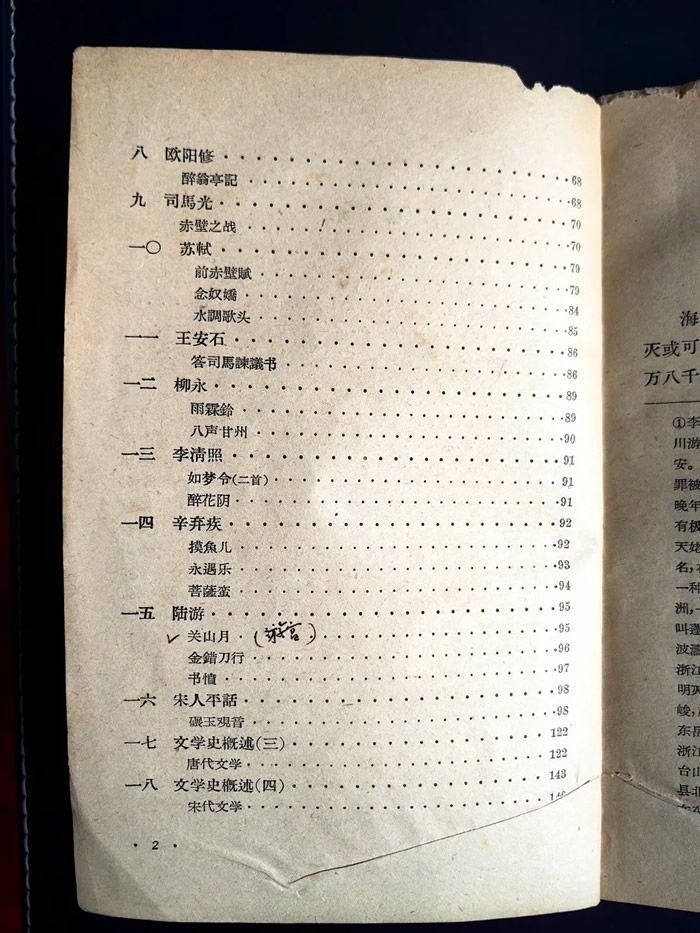 八 欧阳修 · · · · · · 68
醉翁亭記 · · · · · · 68
九 司馬光 · · · · · · 70
赤壁之战 · · · · · · 70
一〇 苏軾 · · · · · · 79
前赤壁賦 · · · · · · 79
念奴嬌 · · · · · · 84
水調歌头 · · · · · · 85
一一 王安石 · · · · · · 86
答司馬諫議书 · · · · · · 86
一二 柳永 · · · · · · 89
雨霖鈴 · · · · · · 89
八声甘州 · · · · · · 90
一三 李清照 · · · · · · 91
如梦令(二首) · · · · · · 91
醉花阴 · · · · · · 91
一四 辛弃疾 · · · · · · 92
摸魚儿 · · · · · · 92
永遇乐 · · · · · · 93
菩薩蛮 · · · · · · 94
一五 陆游 · · · · · · 95
✓ 关山月 · · · · · · 95
金錯刀行 · · · · · · 96
书愤 · · · · · · 97
一六 宋人平話 · · · · · · 98
碾玉观音 · · · · · · 98
一七 文学史概述(三) · · · · · · 122
唐代文学 · · · · · · 122
一八 文学史概述(四) · · · · · · 143
宋代文学 · · · · · ·
· 2 ·
海
灭或可
万八千
①李
川游
安。
罪被
晚年
有极
天姥
名,
一种
洲,
叫蓬
波瀾
浙江
明灭
峻,
东岳
浙江
台山
县北